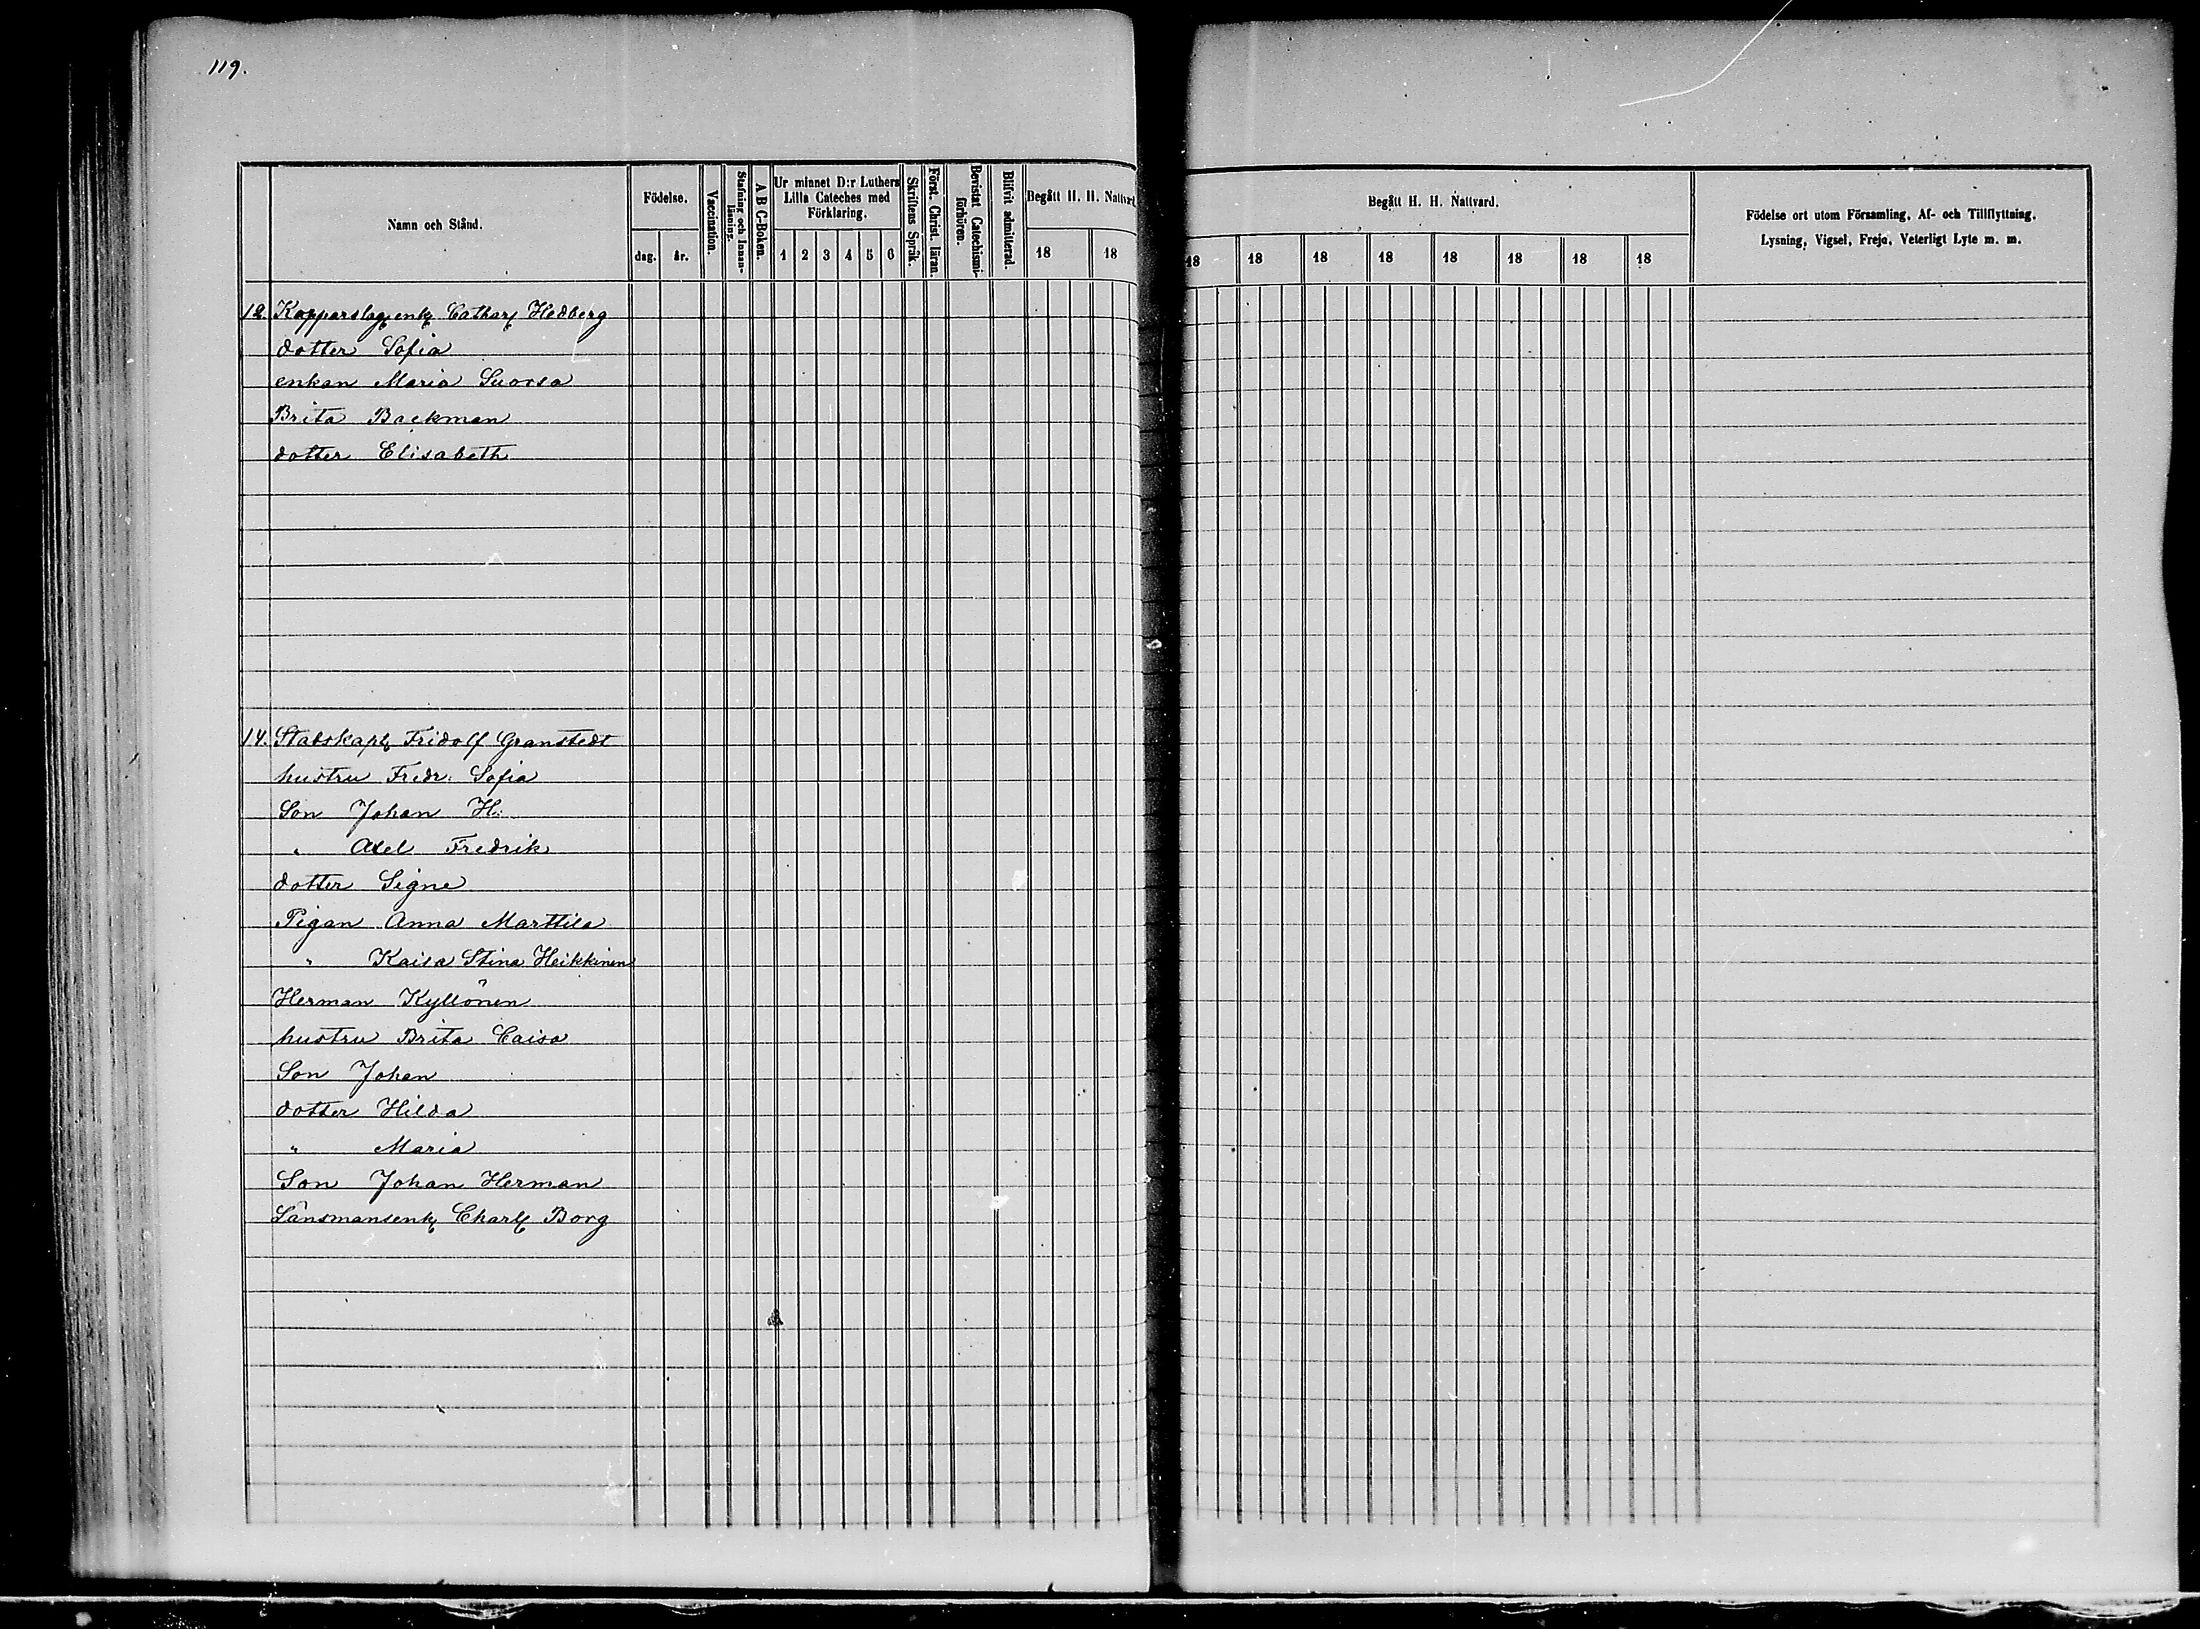 119.
Namn och Stånd.
Födelse.
dag.
år.
Vaccination.
Stafning och Innan-
läsning.
A B C-Boken.
Ur minnet D:r Luthers
Lilla Cateches med
Förklaring.
1 2 3 4 5 6
Skriftens Språk.
Först. Christ. läran.
Bevistat Catechismi-
förhören.
Blifvit admitterad.
Begått H. H. Nattvard.
18 18
Begått H. H. Nattvard.
18 18 18 18 18 18 18 18
Födelse ort utom Församling, Af- och Tillflyttning,
Lysning, Vigsel, Frejd, Veterligt Lyte m. m.
12. Kopparslag enk Cathar Hedberg
dotter Sofia
enkan Maria Suorsa
Brita Backman
dotter Elisabeth
14. Stabskapt Fridolf Granstedt
hustru Fredr: Sofia
Son Johan H:
" Axel Fredrik
dotter Signe
Pigan Anna Marttila
" Kaisa Stina Heikkinen
Herman Kyllönen
hustru Brita Caisa
Son Johan
dotter Hilda
" Maria
Son Johan Herman
Länsmansenk Charl Borg